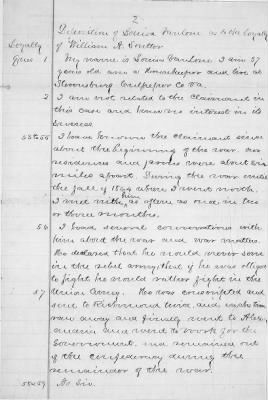 2
Deposition of Louisa Vanlone as to the loyalty
of William H. Soutter
Loyalty
Ques 1 My name is Louisa Vanlone I am 57
years old am a Housekeeper and live at
Stevensburg Culpeper Co Va.
2 I am not related to the Claimant in
the case and have no interest in its
success
53 to 55 I have known the Claimant since
about the beginning of the war. our
residences and farms were about six
miles apart. During the war until
the fall of 1864 when I went north.
I met with him as often as once in two
or three months.
56 I had several conversations with
him about the war and war matters.
He declared that he would never serve
in the rebel army that if he was obliged
to fight he would rather fight in the
Union Army.
57 He was conscripted and
sent to Richmond twice and each time
ran away and finally went to Alex-
andria and went to work for the
Government. and remained out
of the confederacy during the
remainder of the war.
58 to 59 No Sir.